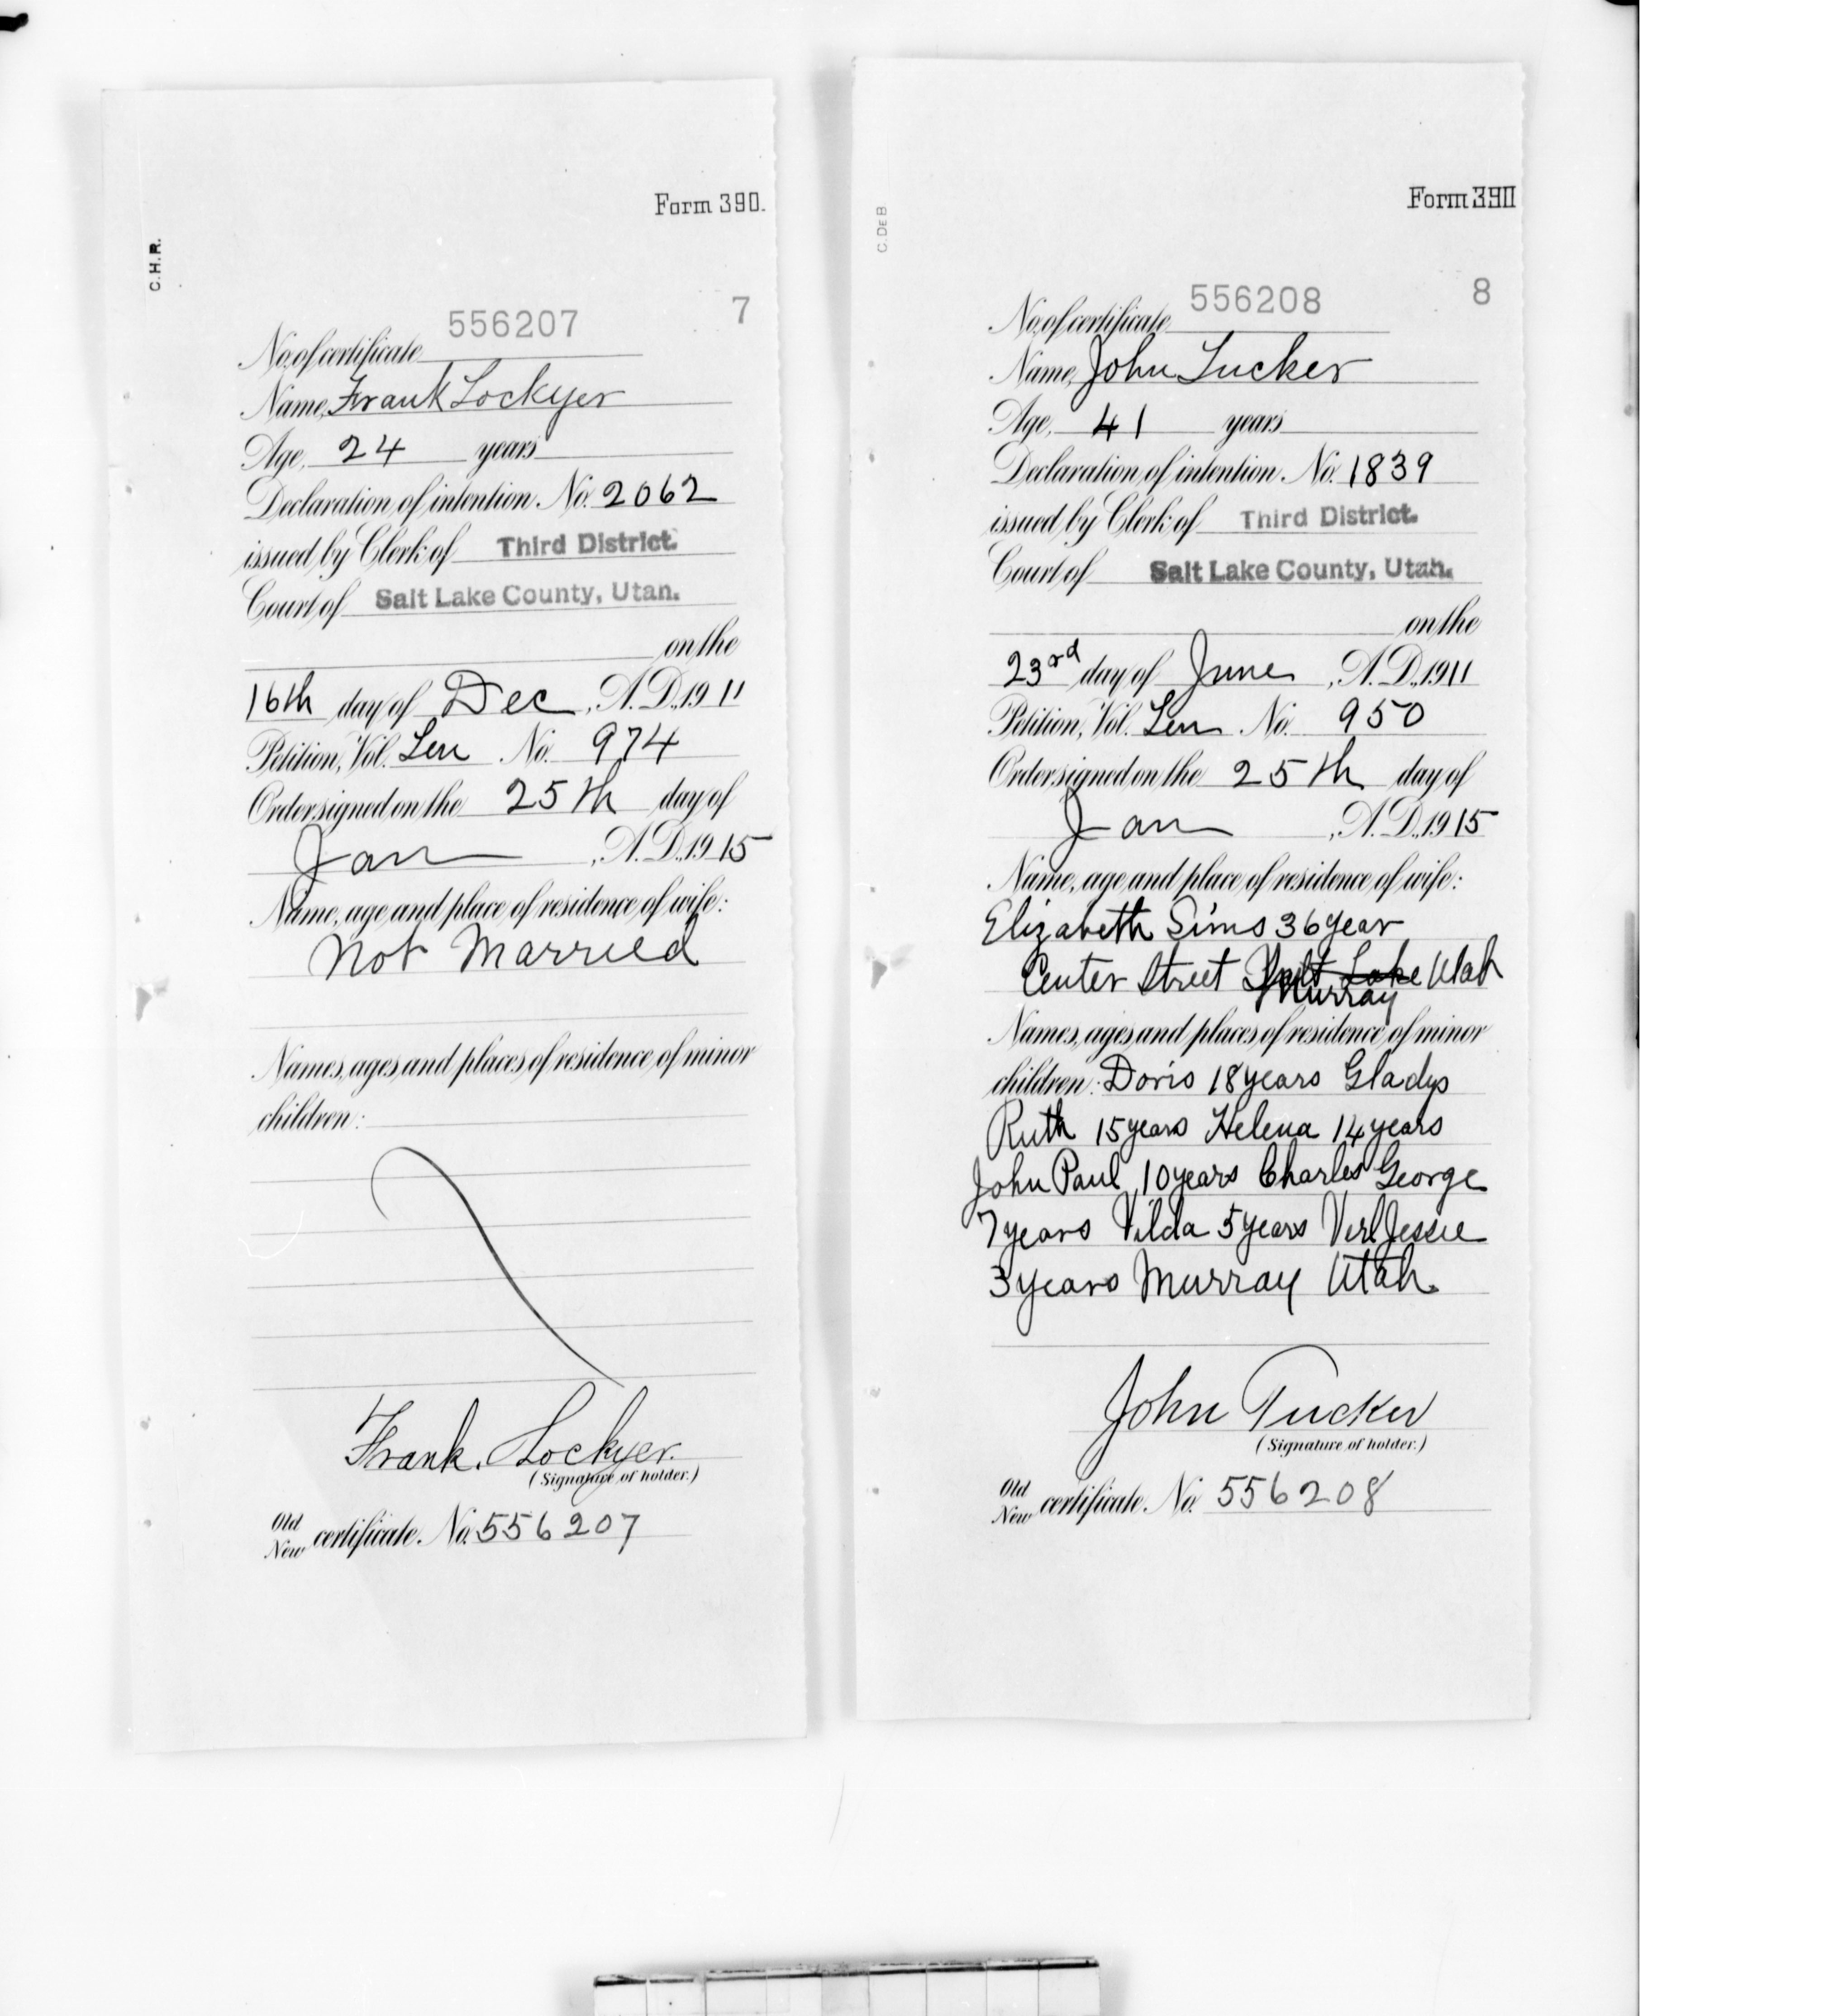 C.H.R.
Form 390.
7
No. of certificate 556207
Name, Frank Lockyer
Age, 24 years
Declaration of intention. No. 2062
issued by Clerk of Third District.
Court of Salt Lake County, Utah.
on the
16th day of Dec, A.D., 1911
Petition, Vol. Ten No. 974
Order signed on the 25th day of
Jan, A.D., 1915
Name, age and place of residence of wife:
Not Married
Names, ages and places of residence of minor
children:
Frank. Lockyer.
(Signature of holder.)
Old
New certificate. No. 556207
C.DEB
Form 390
8
No. of certificate 556208
Name, John Tucker
Age, 41 years
Declaration of intention. No. 1839
issued by Clerk of Third District.
Court of Salt Lake County, Utah.
on the
23rd day of June, A.D., 1911
Petition, Vol. Ten No. 950
Order signed on the 25th day of
Jan, A.D., 1915
Name, age and place of residence of wife:
Elizabeth Sims 36 year
Center Street Salt Lake Utah
Murray
Names, ages and places of residence of minor
children: Doris 18 years Gladys
Ruth 15 years Helena 14 years
John Paul 10 years Charles George
7 years Vilda 5 years Verl Jessie
3 years Murray Utah.
John Tucker
(Signature of holder.)
Old
New certificate. No. 556208